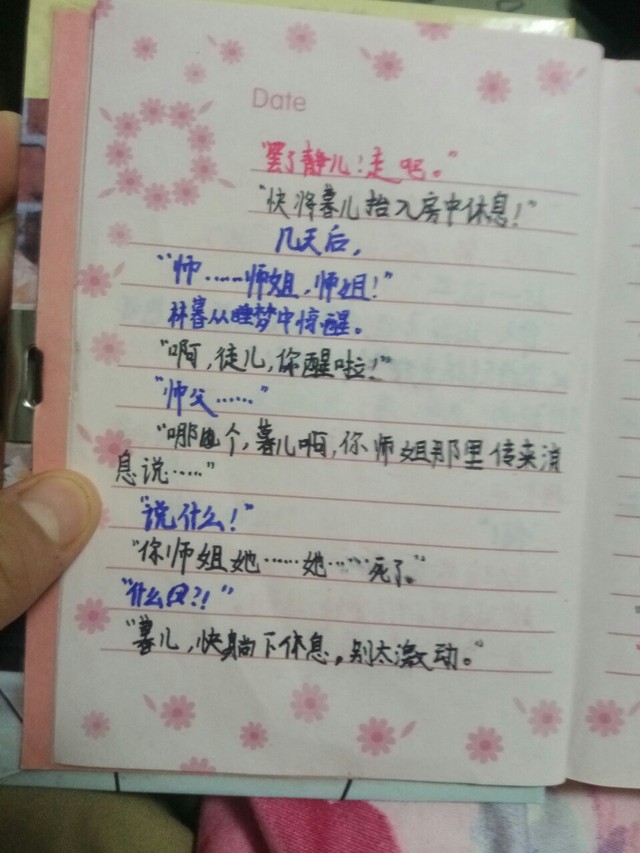 Date
"罢了静儿！走吧。"
"快将暮儿抬入房中休息！"
几天后，
"师……师姐，师姐！"
林暮从睡梦中惊醒。
"啊，徒儿，你醒啦！"
"师父……"
"哪个，暮儿啊，你师姐那里传来消
息说……"
"说什么！"
"你师姐她……她……死了。"
"什么？！"
"暮儿，快躺下休息，别太激动。"